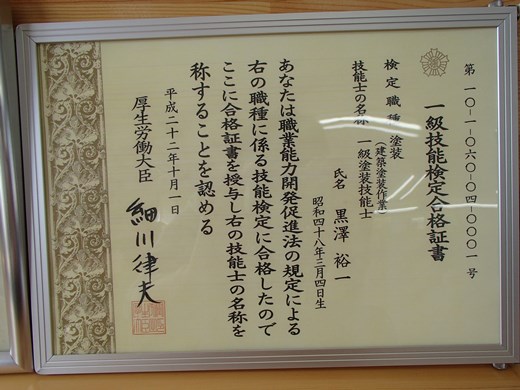 第一〇-一-〇六〇-〇四-〇〇〇一号
一級技能検定合格証書
検定職種 塗装
(建築塗装作業)
技能士の名称 一級塗装技能士
氏名 黒澤裕一
昭和四十八年三月四日生
あなたは職業能力開発促進法の規定による
右の職種に係る技能検定に合格したので
ここに合格証書を授与し右の技能士の名称を
称することを認める
平成二十二年十月一日
厚生労働大臣 細川律夫